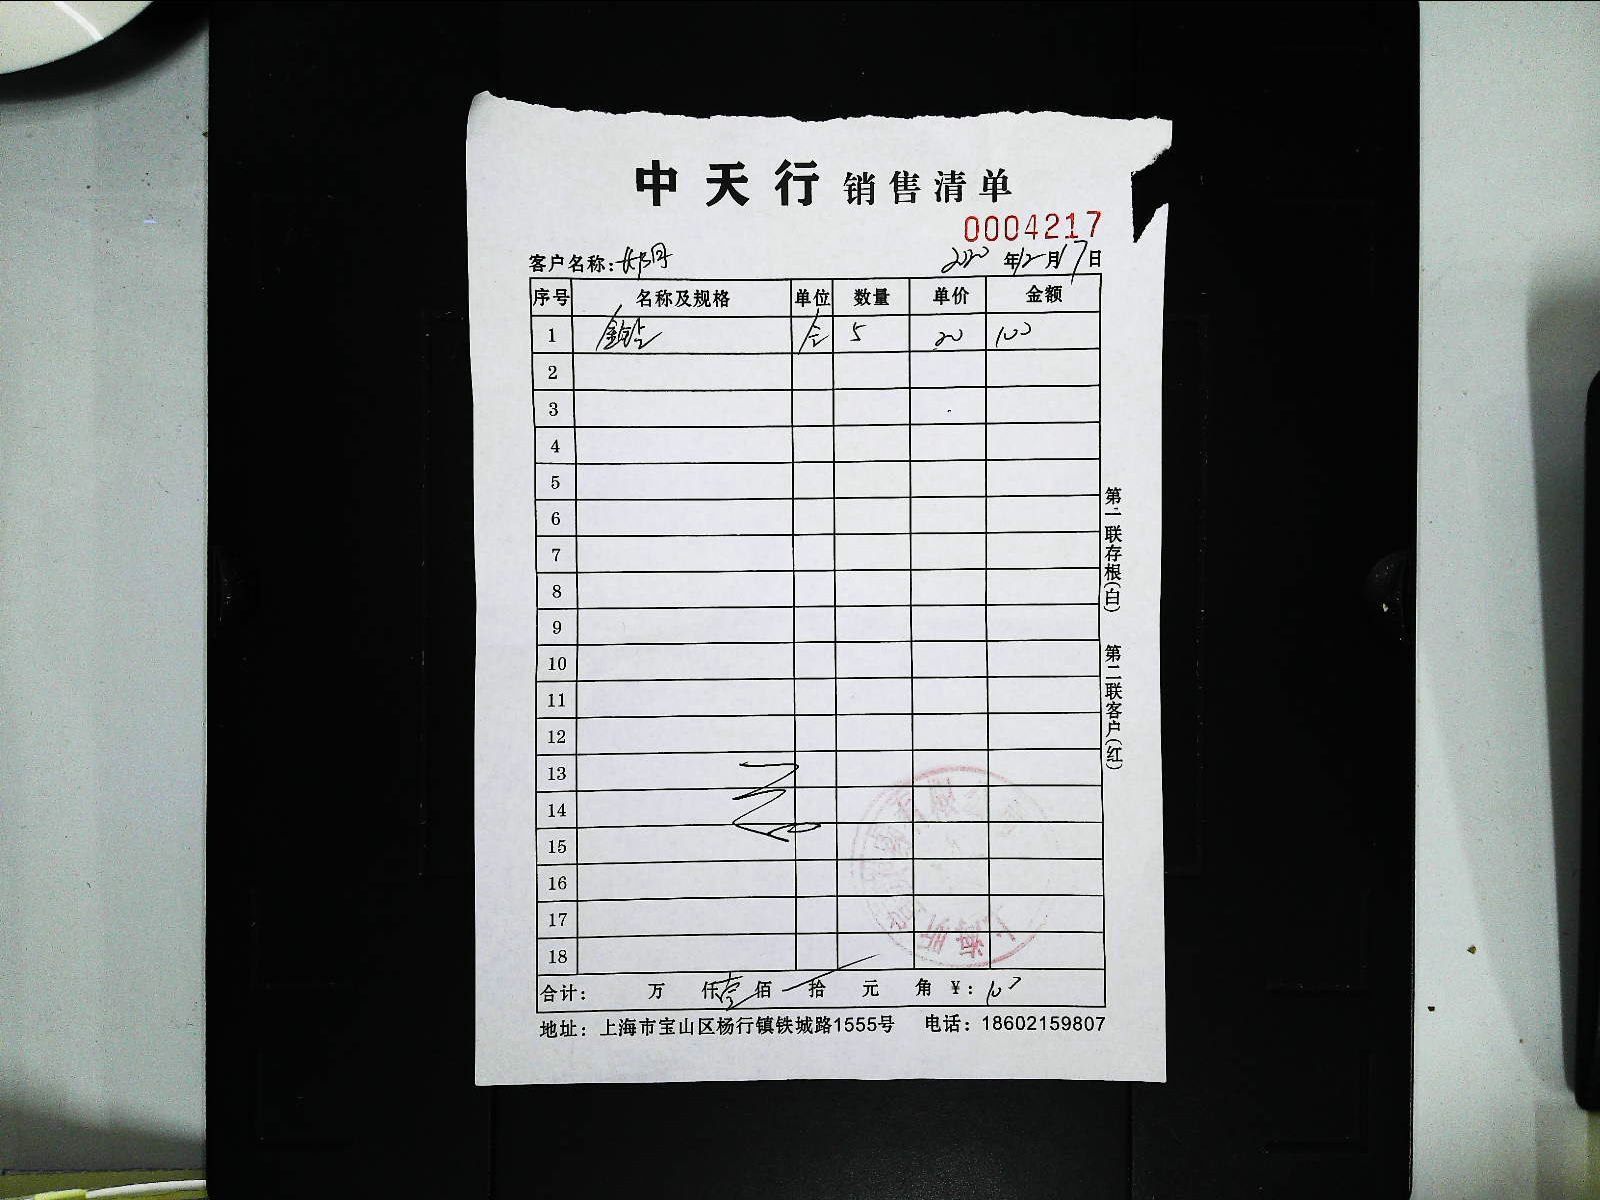 中天行 销售清单
0004217
客户名称: 2020年12月17日
序号 名称及规格 单位 数量 单价 金额
1 5 20 100
2
3
4
5
6
7
8
9
10
11
12
13
14
15
16
17
18
合计: 万 仟壹佰 拾 元 角 ¥: 100
地址: 上海市宝山区杨行镇铁城路1555号 电话: 18602159807
第一联存根(白) 第二联客户(红)
上海 有限公司